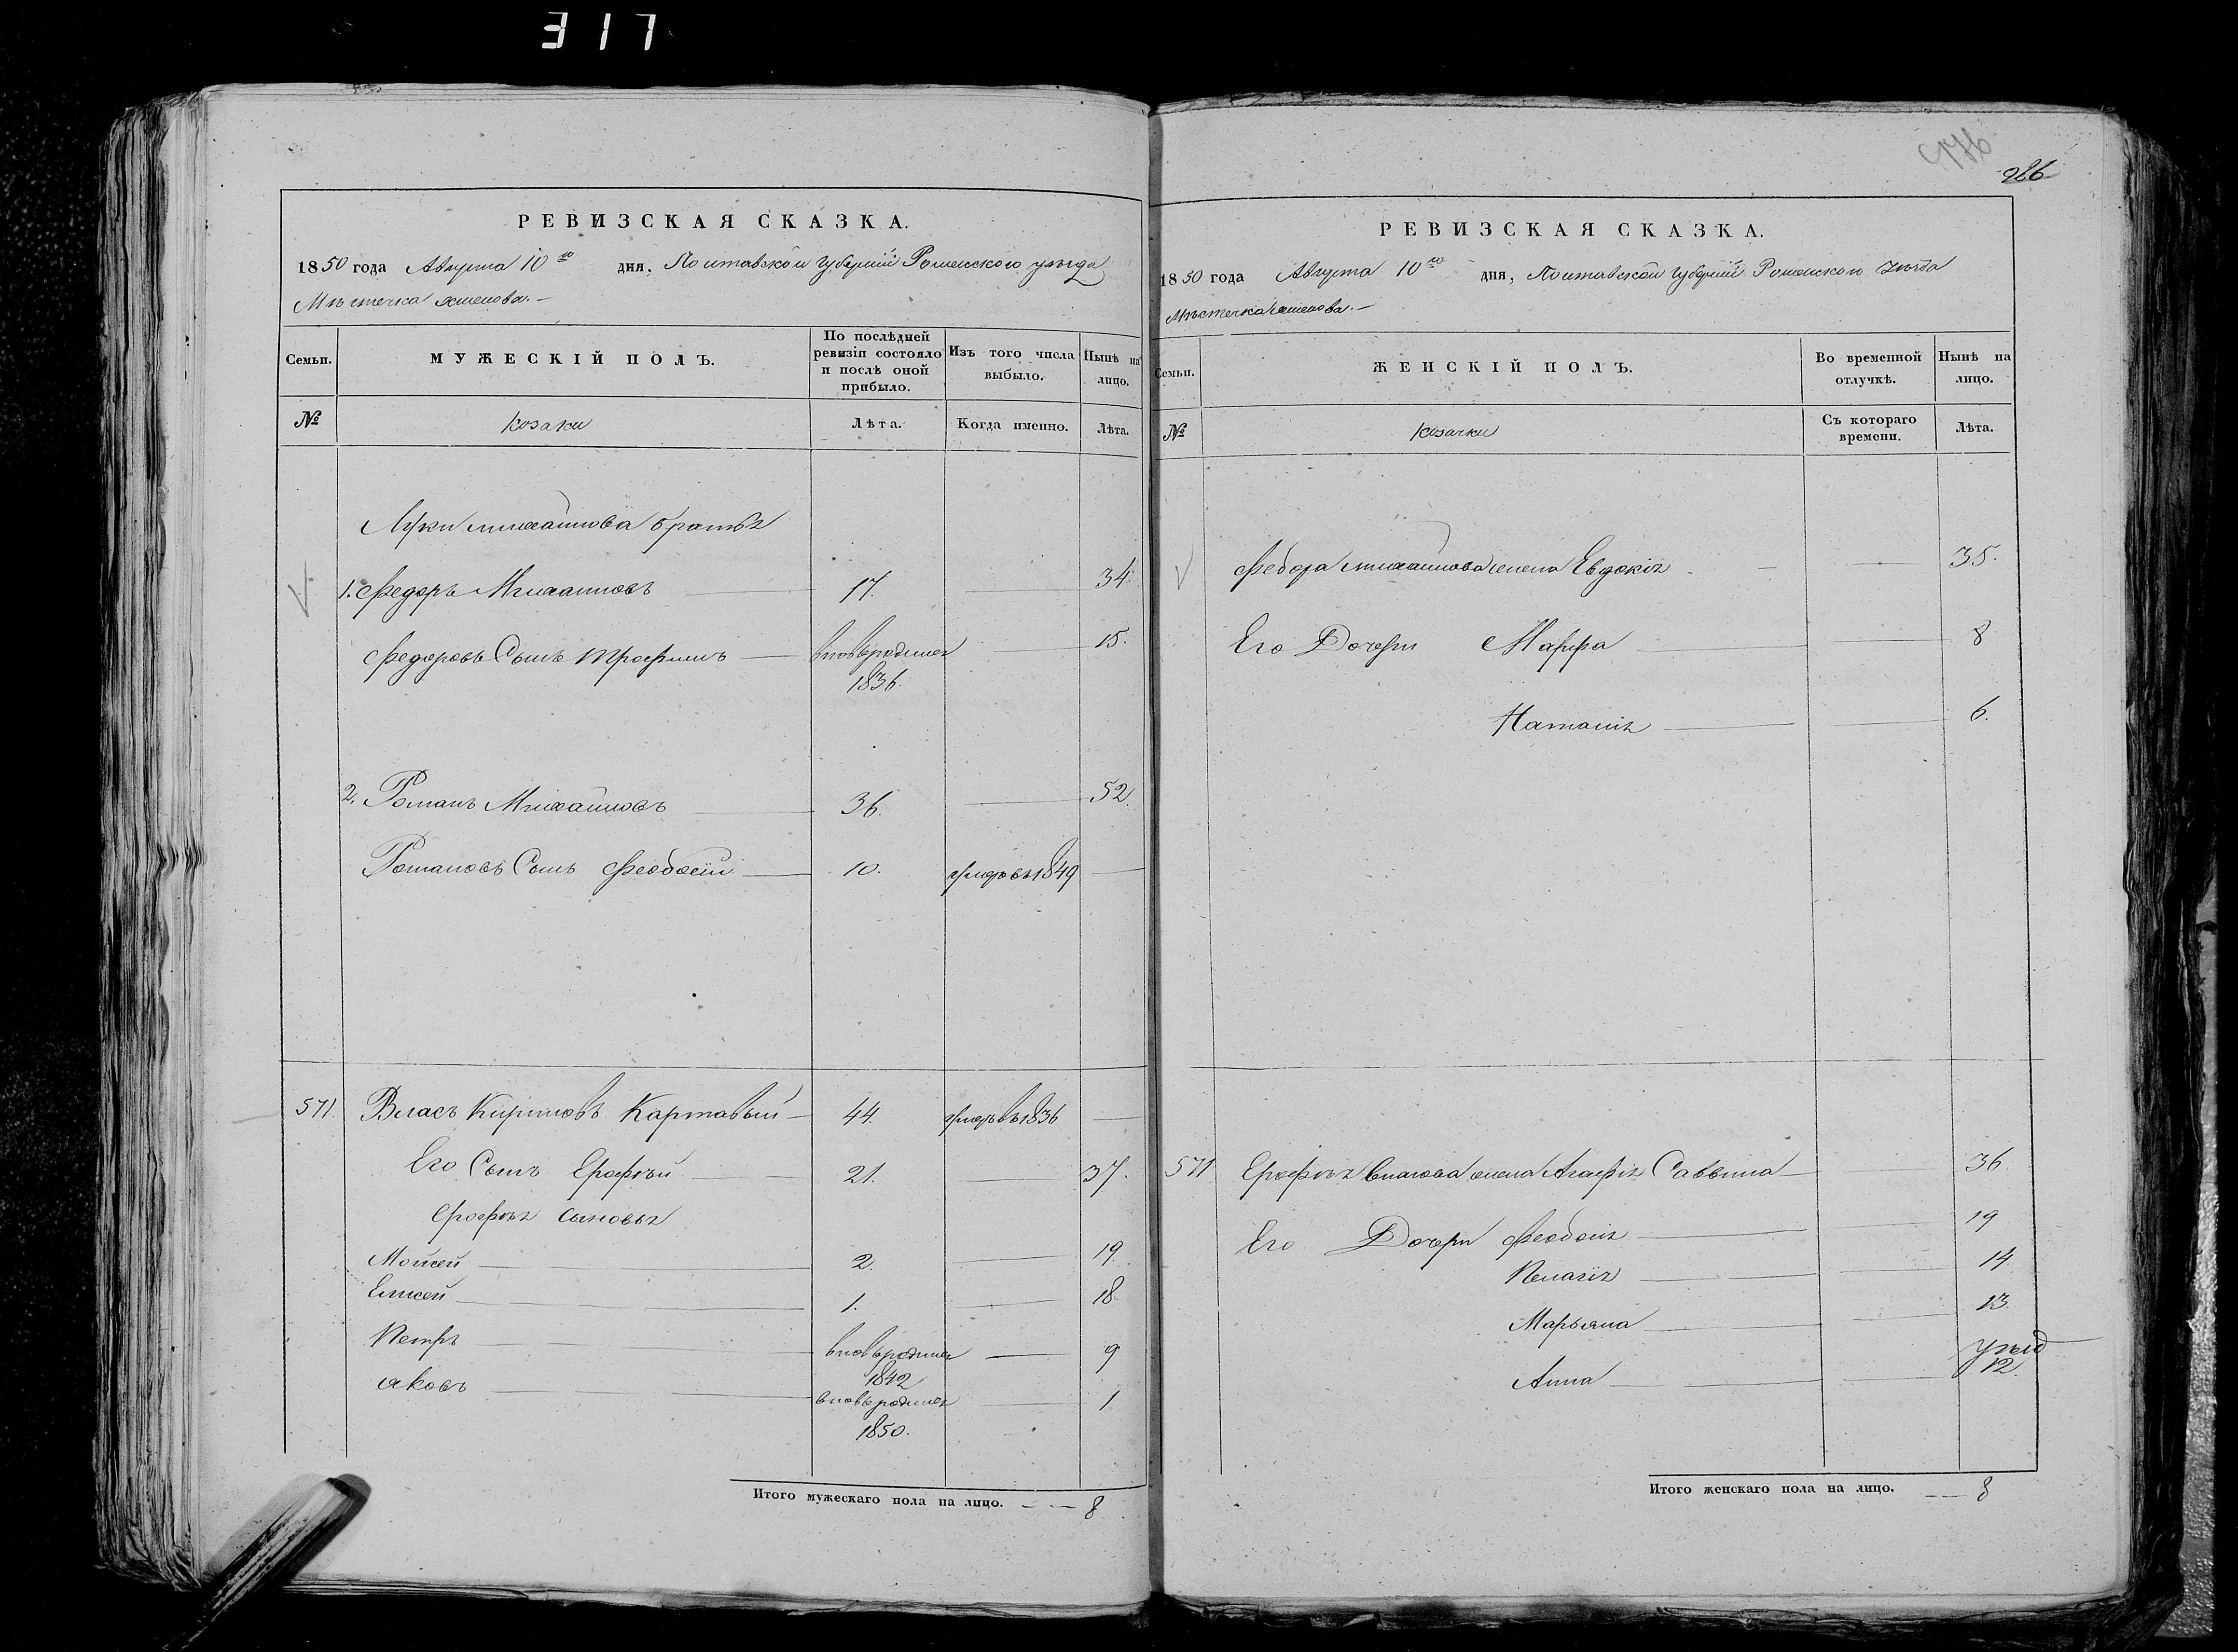 317
РЕВИЗСКАЯ СКАЗКА.
1850 года Августа 10го дня, Полтавской Губерніи Роменского уѣзда
Мѣстечка
Семьи.
МУЖЕСКІЙ ПОЛЪ.
По послѣдней ревизіи состояло и послѣ оной прибыло.
Изъ того числа выбыло.
Нынѣ на лицо.
№
Козаки
Лѣта.
Когда именно.
Лѣта.
Луки Михайлова братья
1. Федоръ Михайловъ 17. 34.
Федоровъ Сынъ Трофимъ вновьродился 1836. 15.
2. Романъ Михайловъ 36. 52.
Романовъ Сынъ Феодосій 10. умеръ въ 1849
571. Власъ Кириловъ Картавый 44. умеръ въ 1836
Его Сынъ Ерофѣй 21. 37.
Ерофѣя сыновья
Мойсей 2. 19.
Елисей 1. 18.
Петръ вновьродился 1842 9
Яковъ вновьродился 1850. 1
Итого мужескаго пола на лицо. 8
286
РЕВИЗСКАЯ СКАЗКА.
1850 года Августа 10го дня, Полтавской Губерніи Роменского уѣзда
Мѣстечка
Семьи.
ЖЕНСКІЙ ПОЛЪ.
Во временной отлучкѣ.
Нынѣ на лицо.
№
Козачки
Съ котораго времени.
Лѣта.
Федора Михайлова жена Евдокія 35.
Его Дочери Марфа 8
Наталія 6.
571 Ерофѣя Власова жена Агафія Саввина 36
Его Дочери Феодосія 19
Пелагія 14
Марьяна 13.
Анна 12.
Итого женскаго пола на лицо. 8